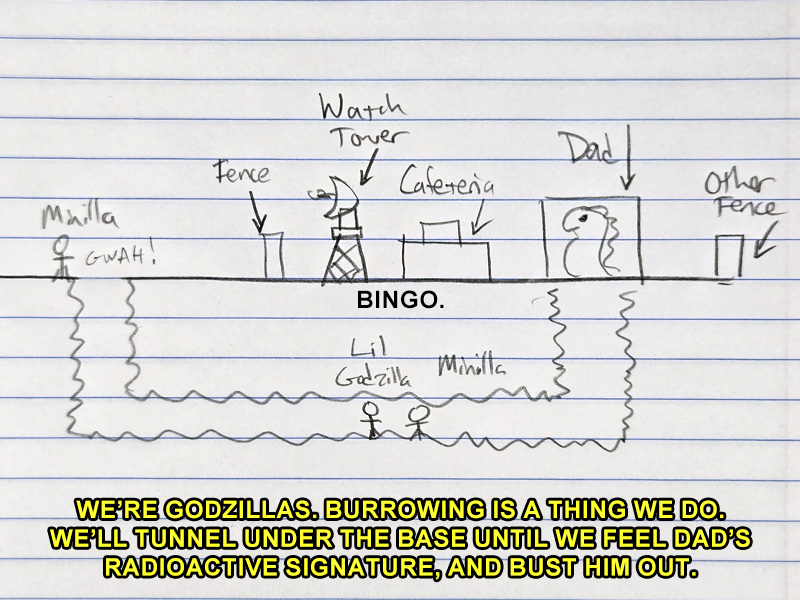 Watch
Tower
Fence
Cafeteria
Dad
Other
Fence
Minilla
GWAH!
BINGO.
Lil
Godzilla
Minilla
WE'RE GODZILLAS. BURROWING IS A THING WE DO.
WE'LL TUNNEL UNDER THE BASE UNTIL WE FEEL DAD'S
RADIOACTIVE SIGNATURE, AND BUST HIM OUT.